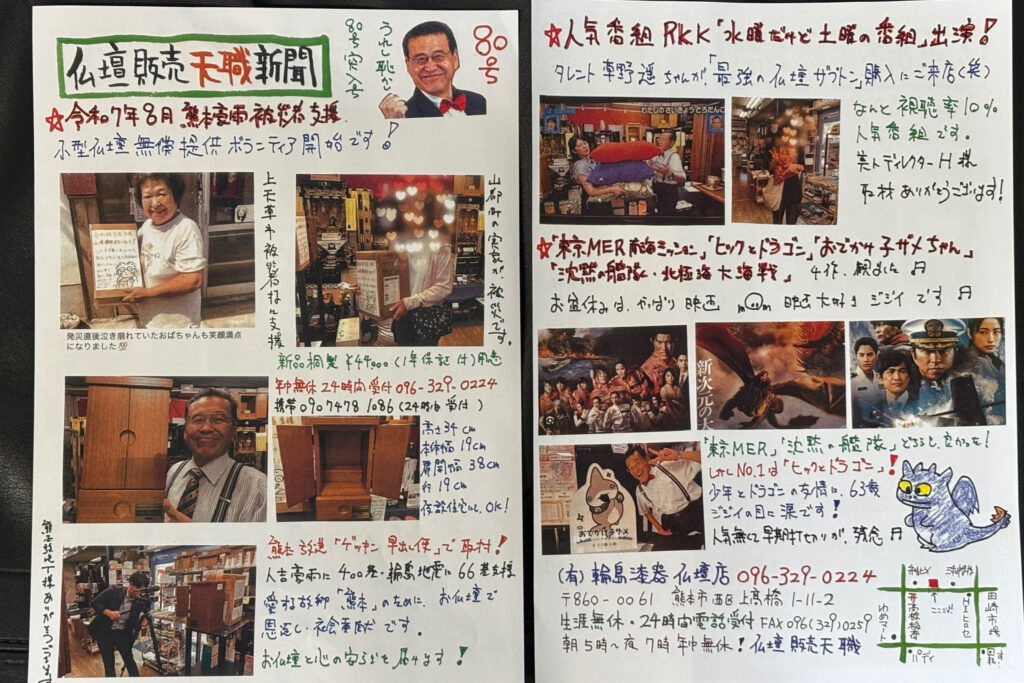 仏壇販売天職新聞
うれし恥かし
80号突入号
80号
☆令和7年8月 熊本豪雨被災者支援
小型仏壇無償提供ボランティア開始です!
上天草市被災者様に支援
山都町の実家が、被災です。
発災直後泣き崩れていたおばちゃんも笑顔満点
になりました💯
新品桐製 ¥44,000 (1年保証付)用意
年中無休24時間受付 096-329-0224
携帯 090 7478 1086 (24時間受付)
高さ34cm
本体幅 19cm
扉開幅 38cm
行 19cm
仮設住宅にも、OK!
熊本放送「ゲツキン早出し便」で取材!
人吉豪雨に400基・輪島地震に66基支援
愛する故郷「熊本」のために、お仏壇で
恩返し・社会貢献です。
お仏壇と心の安らぎを届けます!
☆人気番組 RKK「水曜だけど土曜の番組」出演!
タレント草野遥ちゃんが、「最強の仏壇ザブトン」購入にご来店(笑)
わたしのさいきょうでろたんけ
なんと視聴率10%
人気番組です。
美人ディレクターH様
取材ありがとうございます!
☆「東京MER 南海ミッション」「ヒックとドラゴン」「おでかけ子ザメちゃん」
「沈黙の艦隊・北極海大海戦」 4作、観ました♬
お盆休みは、やっぱり映画 映画大好きジジイです♬
新次元の大
「東京MER」「沈黙の艦隊」どちらも、良かった!
しかしNo.1は「ヒックとドラゴン」!
少年とドラゴンの友情に、63歳
ジジイの目に涙です!
人気無くて早期打ち切りが、残念♬
おでかけ子ザメ
(有)輪島漆器仏壇店 096-329-0224
〒860-0061 熊本市西区上高橋1-11-2
生涯無休・24時間電話受付 FAX096(329)0259
朝5時〜夜7時 年中無休!仏壇販売天職
ここだ!
高橋稲荷
ヒロセ
田崎市場
ゆめマート